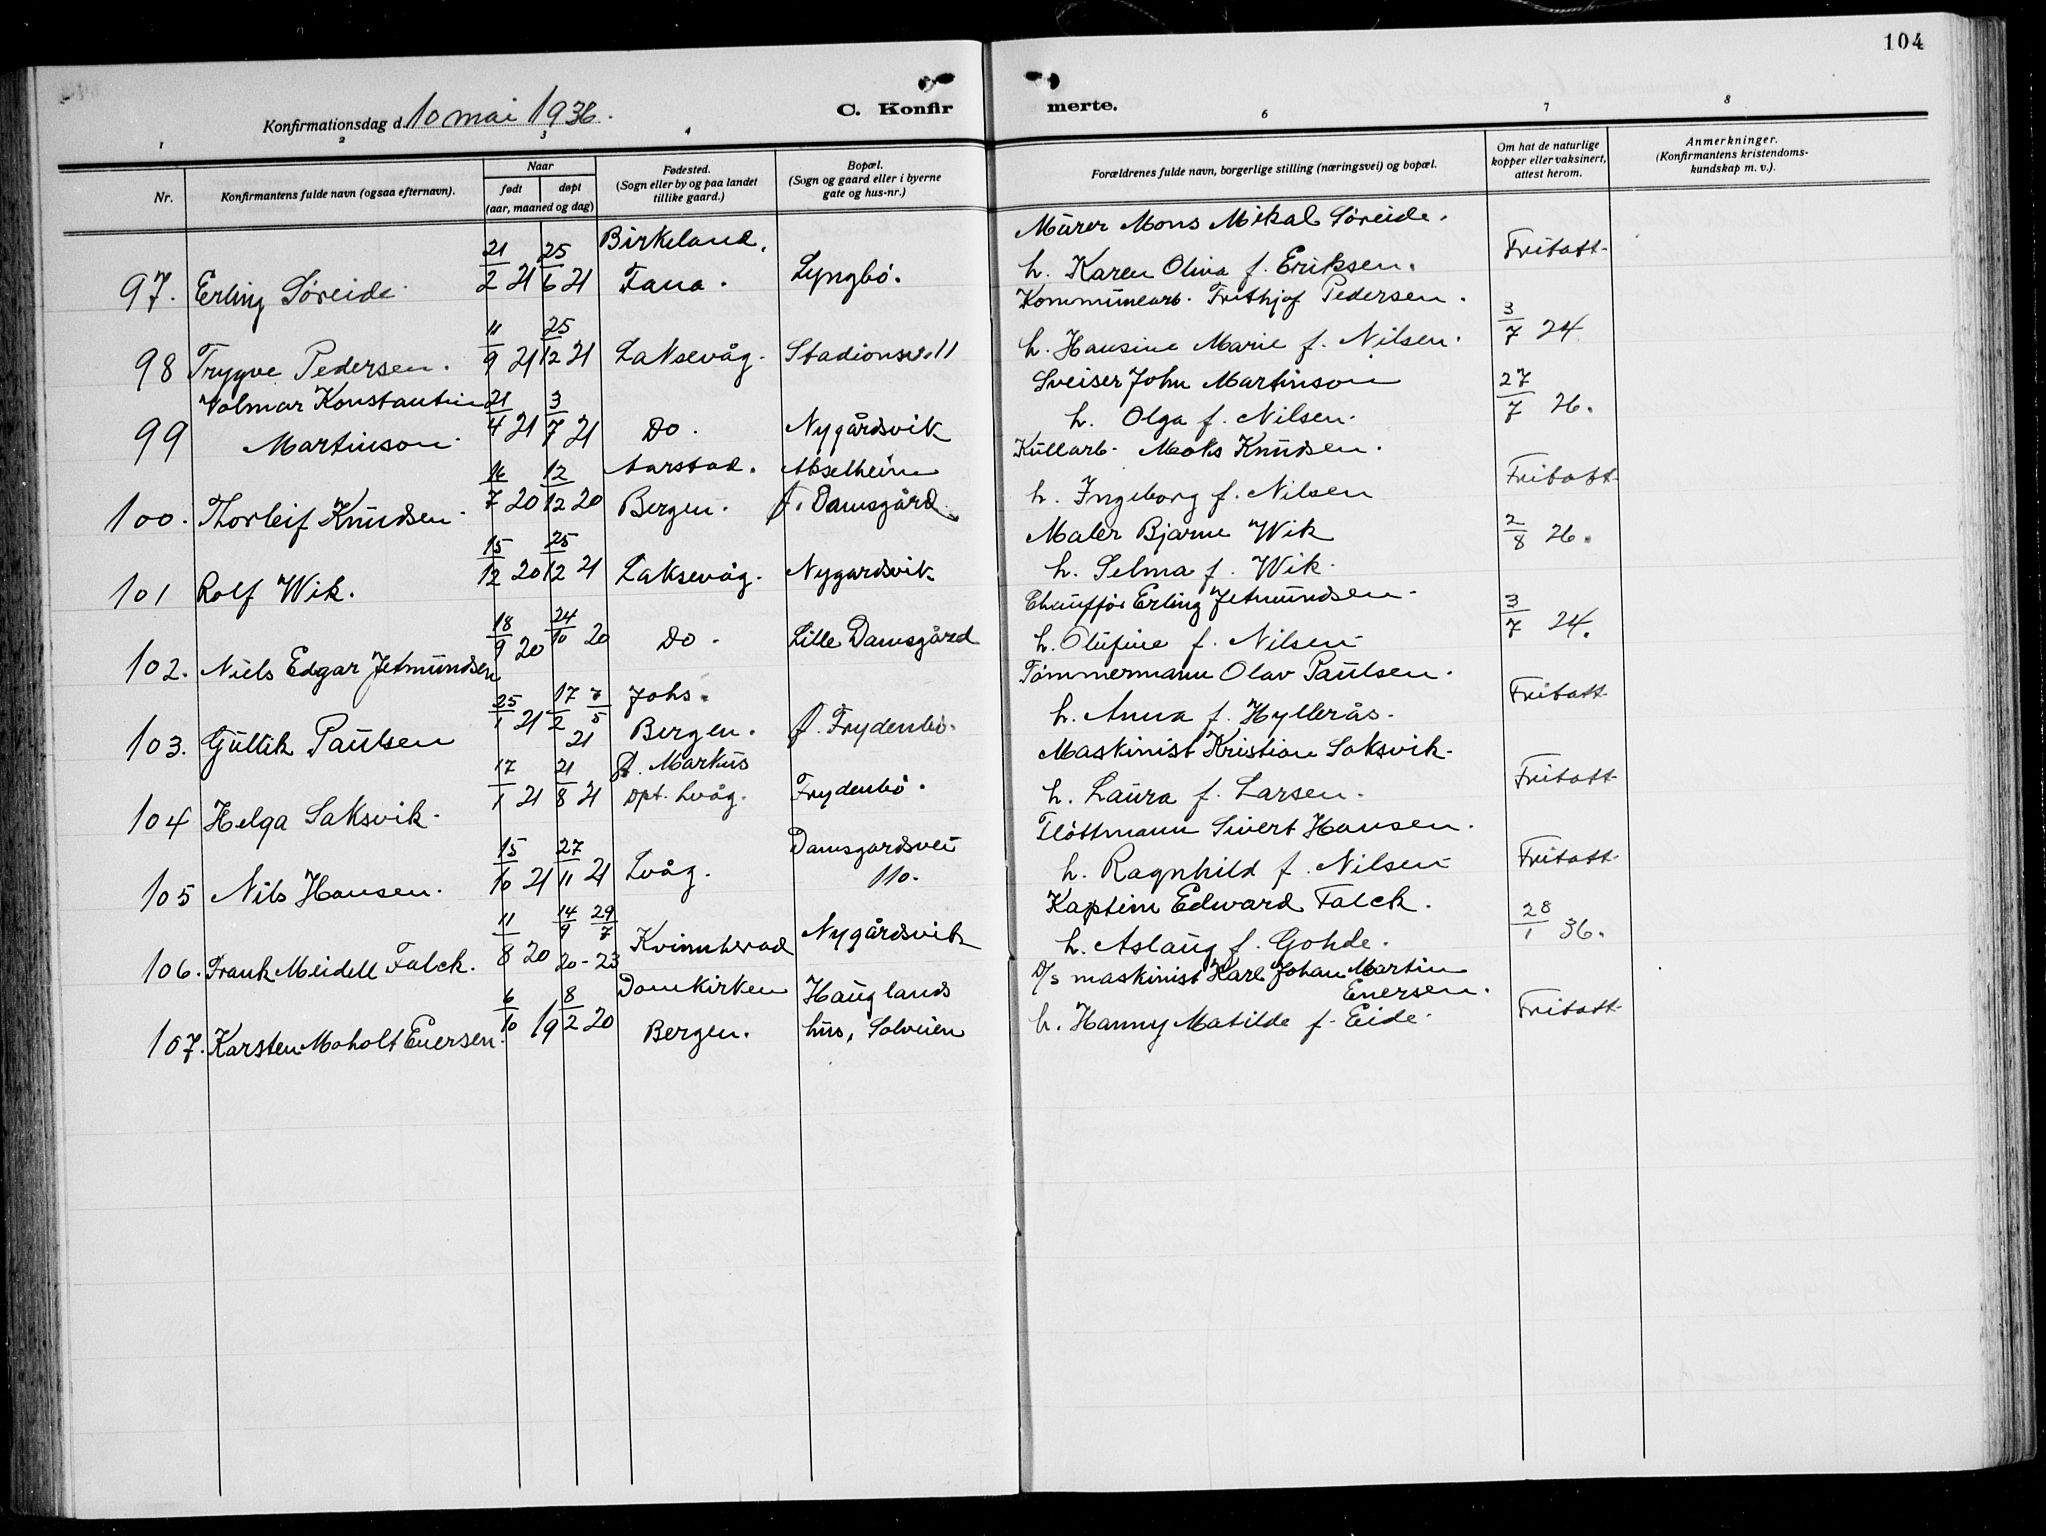 104
Konfirmationsdag d. 10 mai 1936.
C. Konfirmerte.
1 2 3 4 6 7 8
Nr.
Konfirmantens fulde navn (ogsaa efternavn).
Naar
født døpt
(aar, maaned og dag)
Fødested.
(Sogn eller by og paa landet
tillike gaard.)
Bopæl.
(Sogn og gaard eller i byerne
gate og hus-nr.)
Forældrenes fulde navn, borgerlige stilling (næringsvei) og bopæl.
Om hat de naturlige
kopper eller vaksinert,
attest herom.
Anmerkninger.
(Konfirmantens kristendoms-
kundskap m. v.).
97. Erling Søreide 21/2 21 25/6 21 Birkeland, Fana. Lyngbö. Murer Mons Mikal Søreide.
h. Karen Oliva f. Eriksen. Fritatt
98 Trygve Pedersen. 11/9 21 25/12 21 Laksevåg. Stadionsv. 11 Kommunearb. Frithjof Pedersen.
h. Hansine Marie f. Nilsen. 3/7 24
99 Volmar Konstantin Martinson. 21/4 21 3/7 21 Do. Nygårdsvik Sveiser John Martinson
h. Olga f. Nilsen. 27/7 26.
100. Thorleif Knudsen 16/7 20 12/12 20 Aarstad. Bergen. Damsgård. Kullarb. Knudsen.
h. Ingeborg f. Nilsen Fritatt
101 Rolf Wik. 15/12 20 25/12 21 Laksevåg. Nygardsvik Maler Bjarne Wik
h. Selma f. Wik. 2/8 26.
102. Niels Edgar Jetmundsen 18/9 20 24/10 20 Do. Lille Damsgård Chauffør Erling Jetmundsen
h. Olufine f. Nilsen 3/7 24.
103. Gullik Paulsen 25/1 21 17/2 7/5 21 Johs. Bergen. Frydenbö. Tømmermann Olav Paulsen.
h. Anna f. Hyllerås. Fritatt
104 Helga Saksvik. 17/1 21 21/8 21 St. Markus Dpt. Lvåg. Frydenbö. Maskinist Kristian Saksvik.
h. Laura f. Larsen. Fritatt
105 Nils Hansen. 15/10 21 27/11 21 Lvåg. Damsgardsvei 110. Flöttmann Sivert Hansen.
h. Ragnhild f. Nilsen Fritatt
106. Frank Meidell Falck. 11/8 20 14/9 20 - 29/7 23 Kvinnherad Nygårdsvik Kaptein Edward Falck.
h. Aslaug f. Gohde. 28/1 36.
107. Karsten Moholt Enersen. 6/10 19 8/2 20 Domkirken Bergen. Hauglands hus, Solveien D/s maskinist Karl Johan Martin Enersen.
h. Hanny Matilde f. Eide. Fritatt